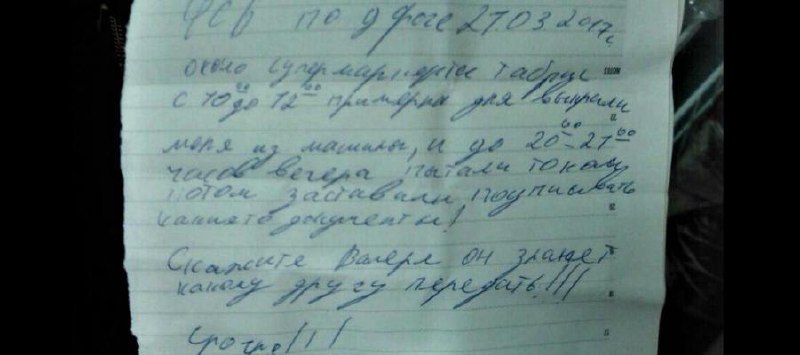 ФСБ по уфосе 27.03 2017г
около супермаркета Табрис
с 10⁰⁰ до 12⁰⁰ примерно дня выкрали
меня из машины, и до 20⁰⁰-21⁰⁰
часов вечера пытали током
потом заставили подписывать
какието документы!
Скажите Валере он знает
какому другу передать!!!
Срочно!!!